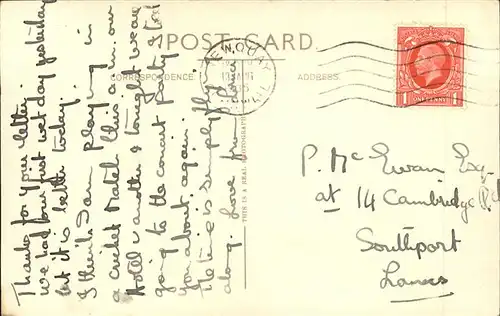 POST CARD
CORRESPONDENCE
ADDRESS.
NEWQUAY
ONE PENNY
THIS IS A REAL PHOTOGRAPH
Thanks for your letter.
We had our first wet day yesterday
but it is better today.
I think I am playing in
a cricket match this a.m. our
Hotel v another & tonight we are
going to the concert party & tell
you about again.
The time is simply flying
along. Love from
P. McEwan Esq.
at 14 Cambridge Rd
Southport
Lancs